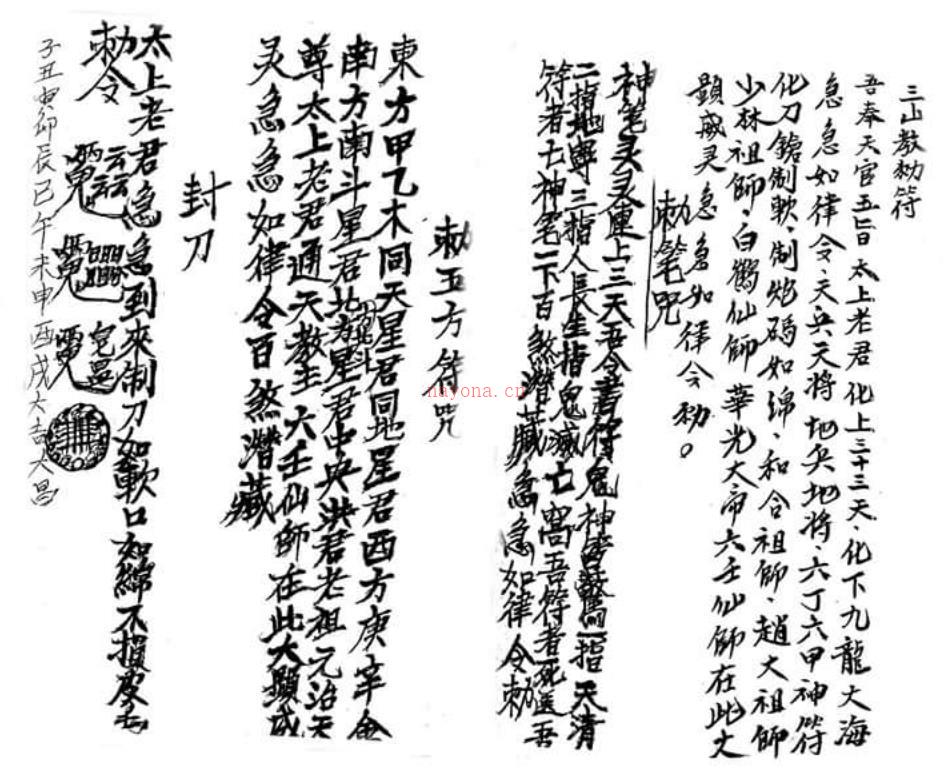 三山教勅符
吾奉天官五旨太上老君化上三十三天、化下九龍大海
急急如律令、天兵天将地兵地将、六丁六甲神符
化刀鎗制軟、制炮碼如綿、和合祖師、趙大祖師
少林祖師、白鶴仙師 華光大帝六壬仙师在此大
顕威灵 急急如律令勅。
勅筆咒
神笔灵灵運上三天吾令書符鬼神皆驚一指天清
二指地寧三指人長生指鬼滅亡窩吾符者死逢吾
符者亡神笔一下百煞潜藏急急如律令勅
勅五方符咒
東方甲乙木同天星君同地星君西方庚辛金
南方南斗星君北方星君中央洪君老祖元治天
尊太上老君通天教主六壬仙師在此大顕威
灵急急如律令百煞潜藏
封刀
太上老君急急到來制刀如軟口如綿不損皮毛
勅令
子丑寅卯辰巳午未申酉戌大吉大昌
nayona.cn